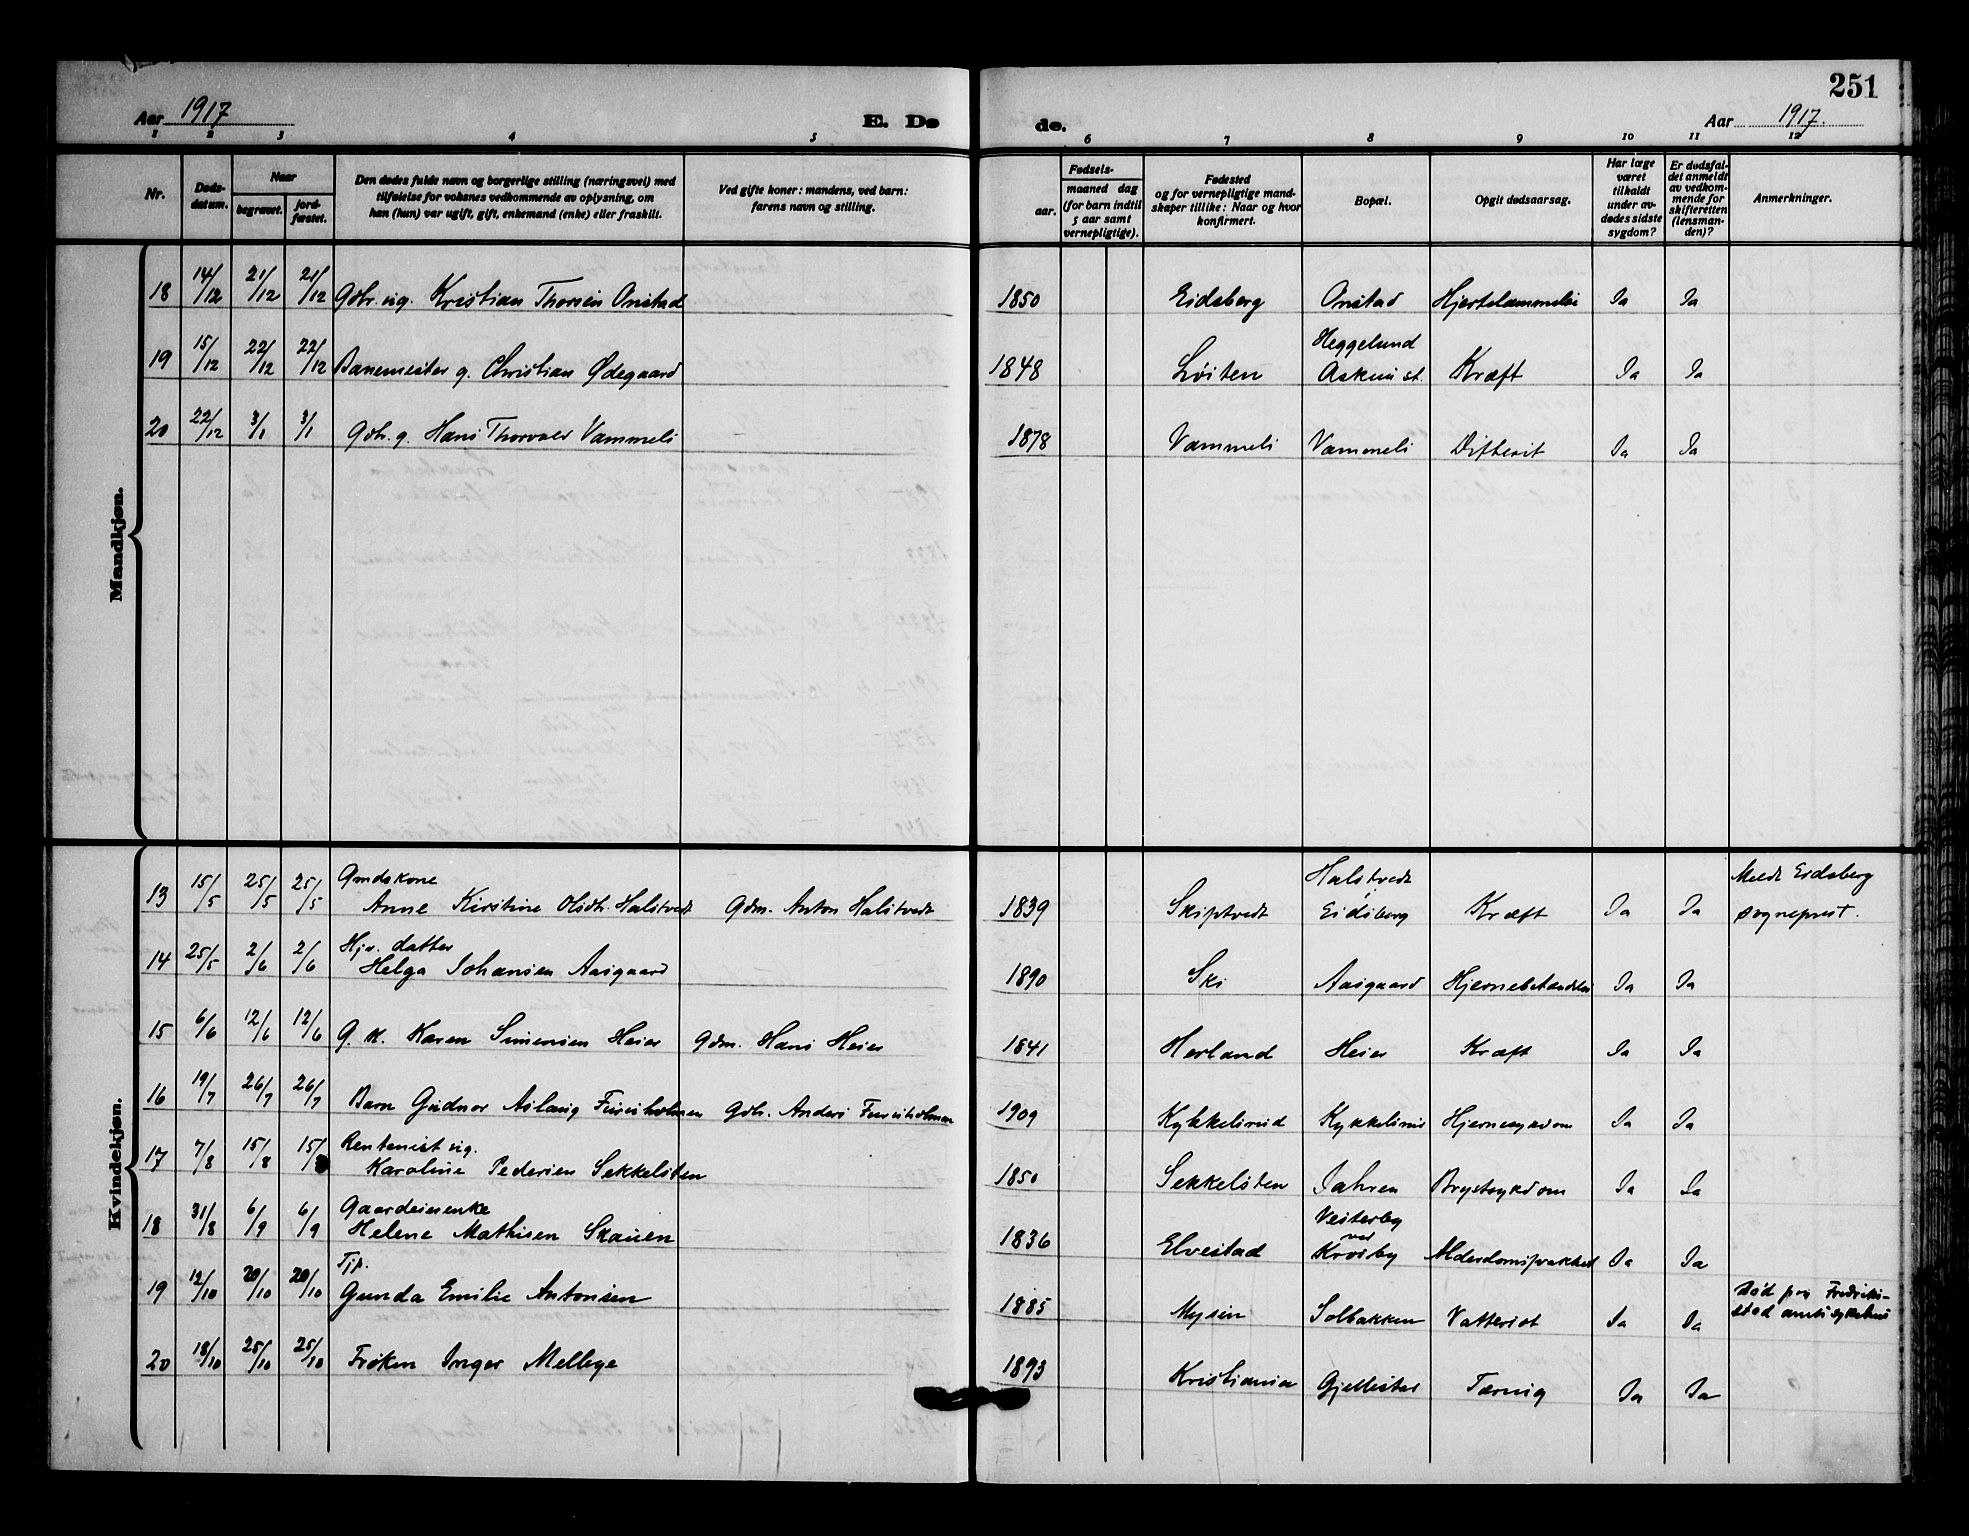 251
Aar 1917
E. Dø
de.
Aar 1917.
1 2 3 4 5
6 7 8 9 10 11 12
Nr.
Døds-
datum.
Naar
begravet.
jord-
fæstet.
Den dødes fulde navn og borgerlige stilling (næringsvei) med
tilføielse for voksnes vedkommende av oplysning, om
han (hun) var ugift, gift, enkemand (enke) eller fraskilt.
Ved gifte koner: mandens, ved barn:
farens navn og stilling.
Fødsels-
aar.
maaned dag
(for barn indtil
5 aar samt
vernepligtige).
Fødested
og for vernepligtige mand-
skaper tillike: Naar og hvor
konfirmert.
Bopæl.
Opgit dødsaarsag.
Har læge
været
tilkaldt
under av-
dødes sidste
sygdom?
Er dødsfal-
det anmeldt
av vedkom-
mende for
skifteretten
(lensman-
den)?
Anmerkninger.
Mandkjøn.
18 14/12 21/12 21/12 Gbr. ug. Kristian Thorsen Onstad 1850 Eidsberg Onstad Hjertelammelse Ja Ja
Heggelund
19 15/12 22/12 22/12 Banemester g. Christian Ødegaard 1848 Løiten Askim st. Kræft Ja Ja
20 22/12 3/1 3/1 Gbr. g. Hans Thorvald Vammeli 1878 Vammeli Vammeli Difterit Ja Ja
Kvindekjøn.
Gmdskone Halstvedt Meldt Eidsberg
13 15/5 25/5 25/5 Anne Kirstine Olsdtr. Halstvedt Gdm. Anton Halstvedt 1839 Skiptvedt Eidsberg Kræft Ja Ja sogneprest.
Hjv. datter
14 25/5 2/6 2/6 Helga Johansen Aasgaard 1890 Ski Aasgaard Hjernebetændelse Ja Ja
15 6/6 12/6 12/6 G. K. Karen Simensen Heier Gdm. Hans Heier 1841 Herland Heier Kræft Ja Ja
16 19/7 26/7 26/7 Barn Gudnor Aslaug Furuholmen Gbr. Anders Furuholmen 1909 Kykkelsrud Kykkelsrud Hjernesykdom Ja Ja
Rentenist ug.
17 7/8 15/8 15/8 Karoline Pedersen Sekkelsten 1850 Sekkelsten Jahren Brystsykdom Ja Ja
Gaardeierenke Vesterby
18 31/8 6/9 6/9 Helene Mathisen Skauen 1836 Elvestad ved Krosby Alderdomssvakhed Ja Ja
Tjp. Død paa Fredrik-
19 12/10 20/10 20/10 Gunda Emilie Antonsen 1885 Mysen Solbakken Vattersot Ja Ja stad amts sykehus
20 18/10 25/10 25/10 Frøken Inger Mellbye 1893 Kristiania Gjellestad Tæring Ja Ja